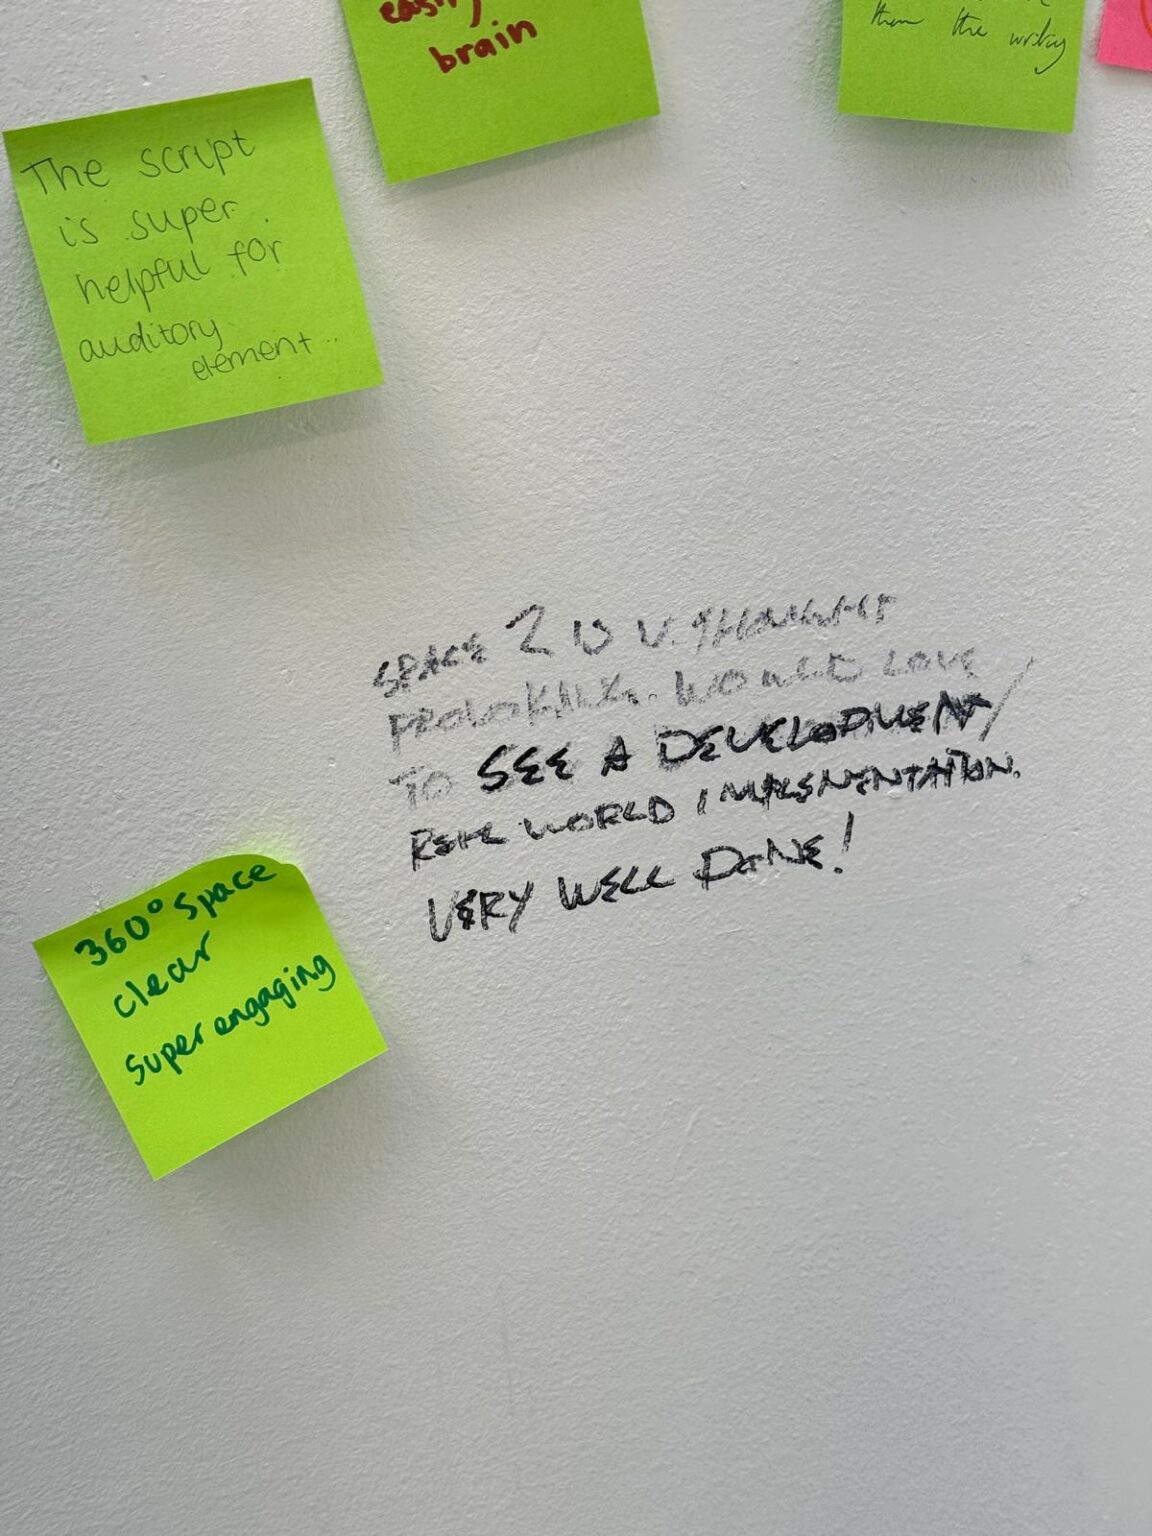 easily
brain
than the writing
The script
is super
helpful for
auditory
element..
SPACE 2 IS V. THOUGHT
PROVOKING. WOULD LOVE
TO SEE A DEVELOPMENT/
REAL WORLD IMPLEMENTATION.
VERY WELL DONE!
360° Space
clear
super engaging